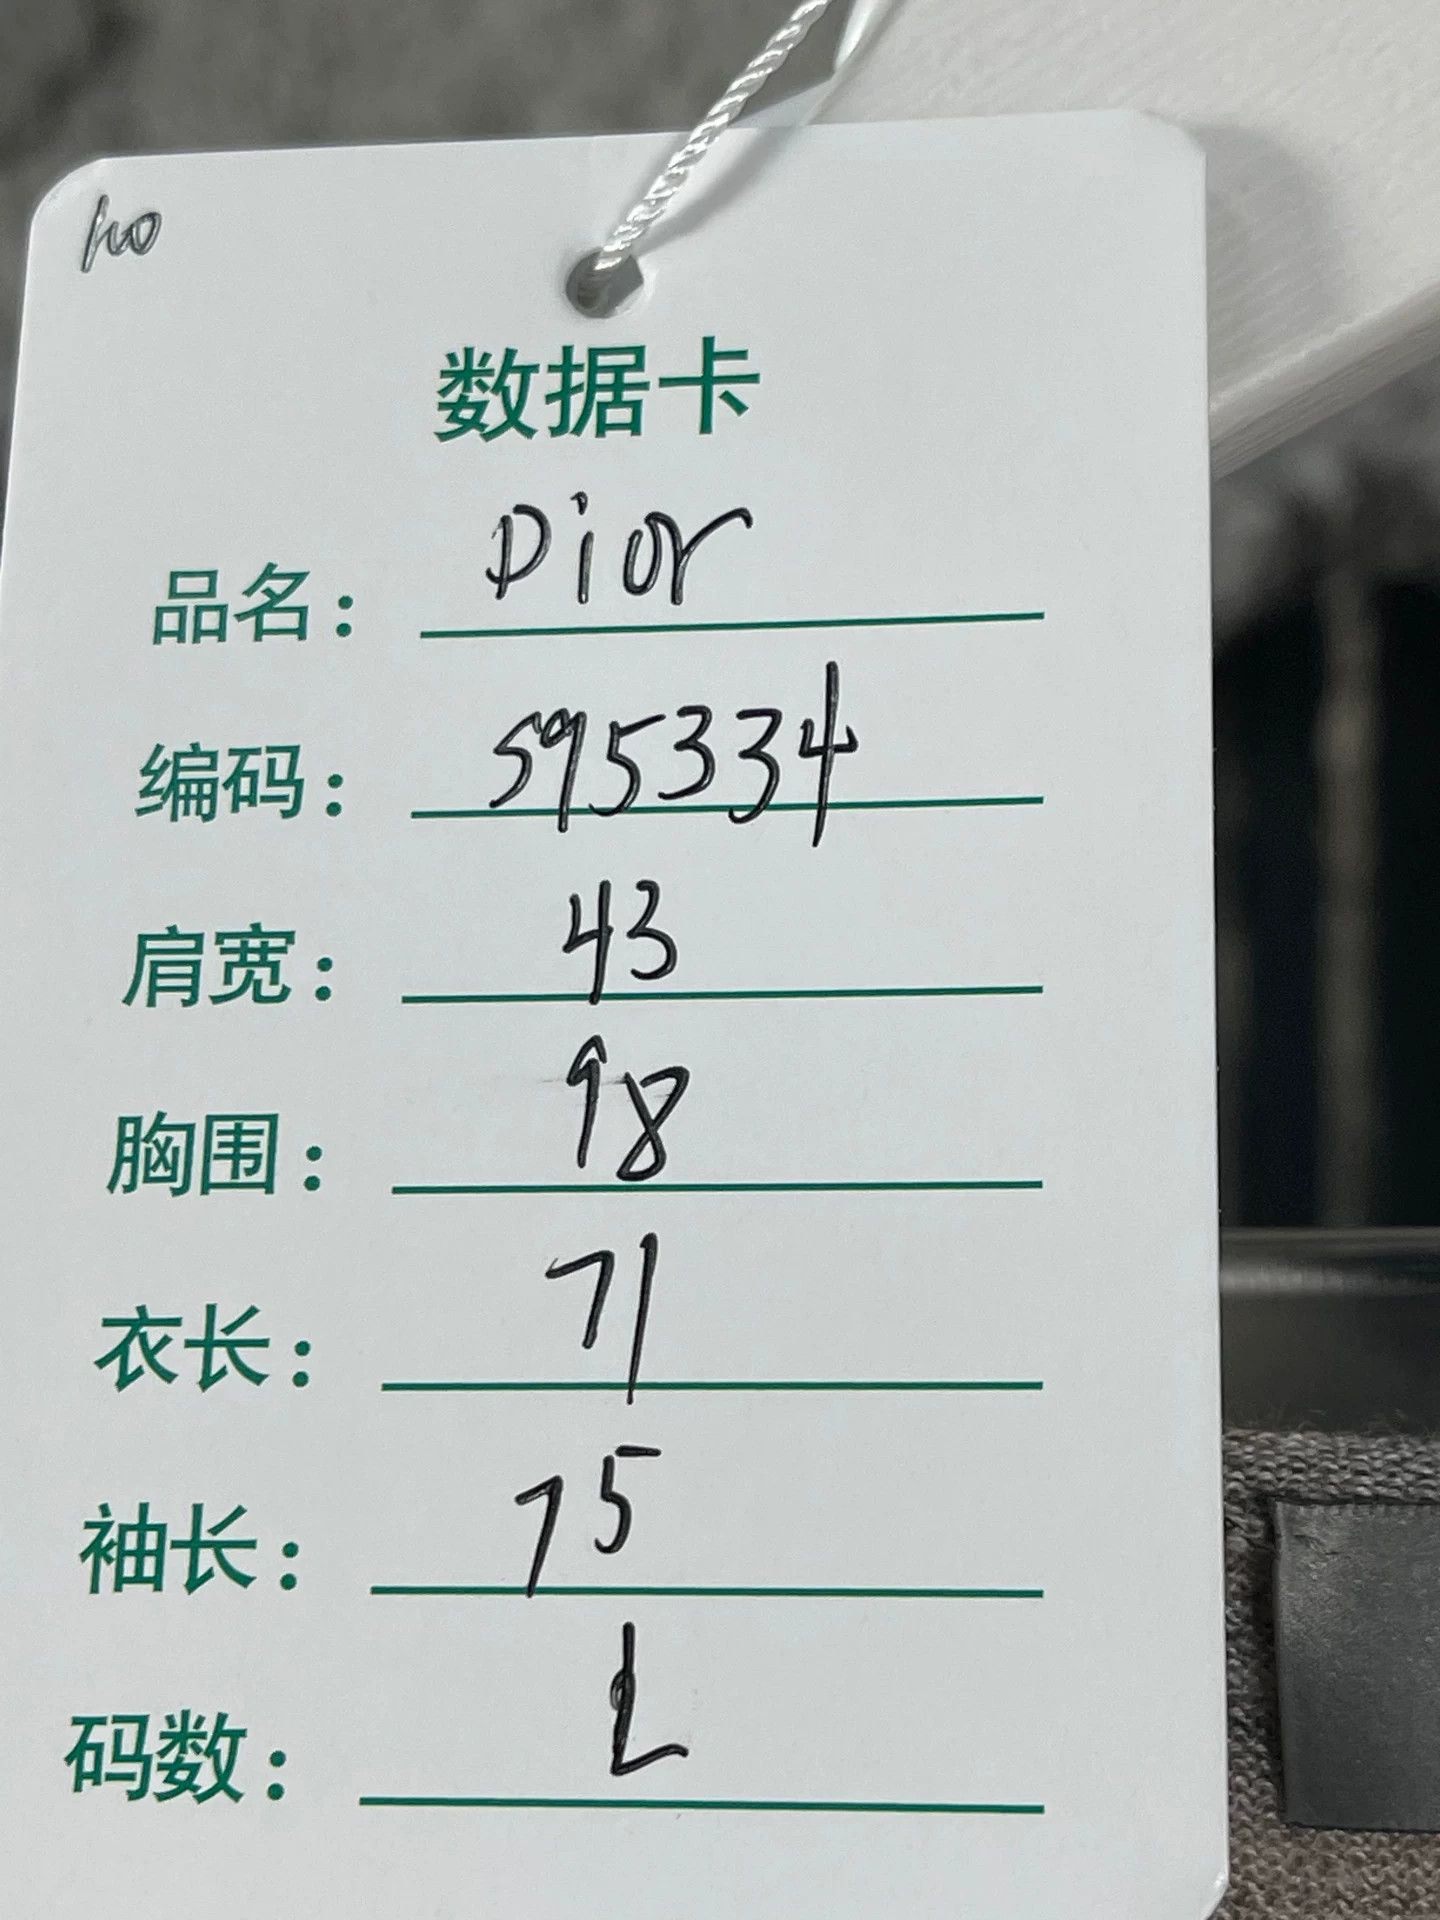 数据卡
品名： Dior
编码： 595334
肩宽： 43
胸围： 98
衣长： 71
袖长： 75
码数： L